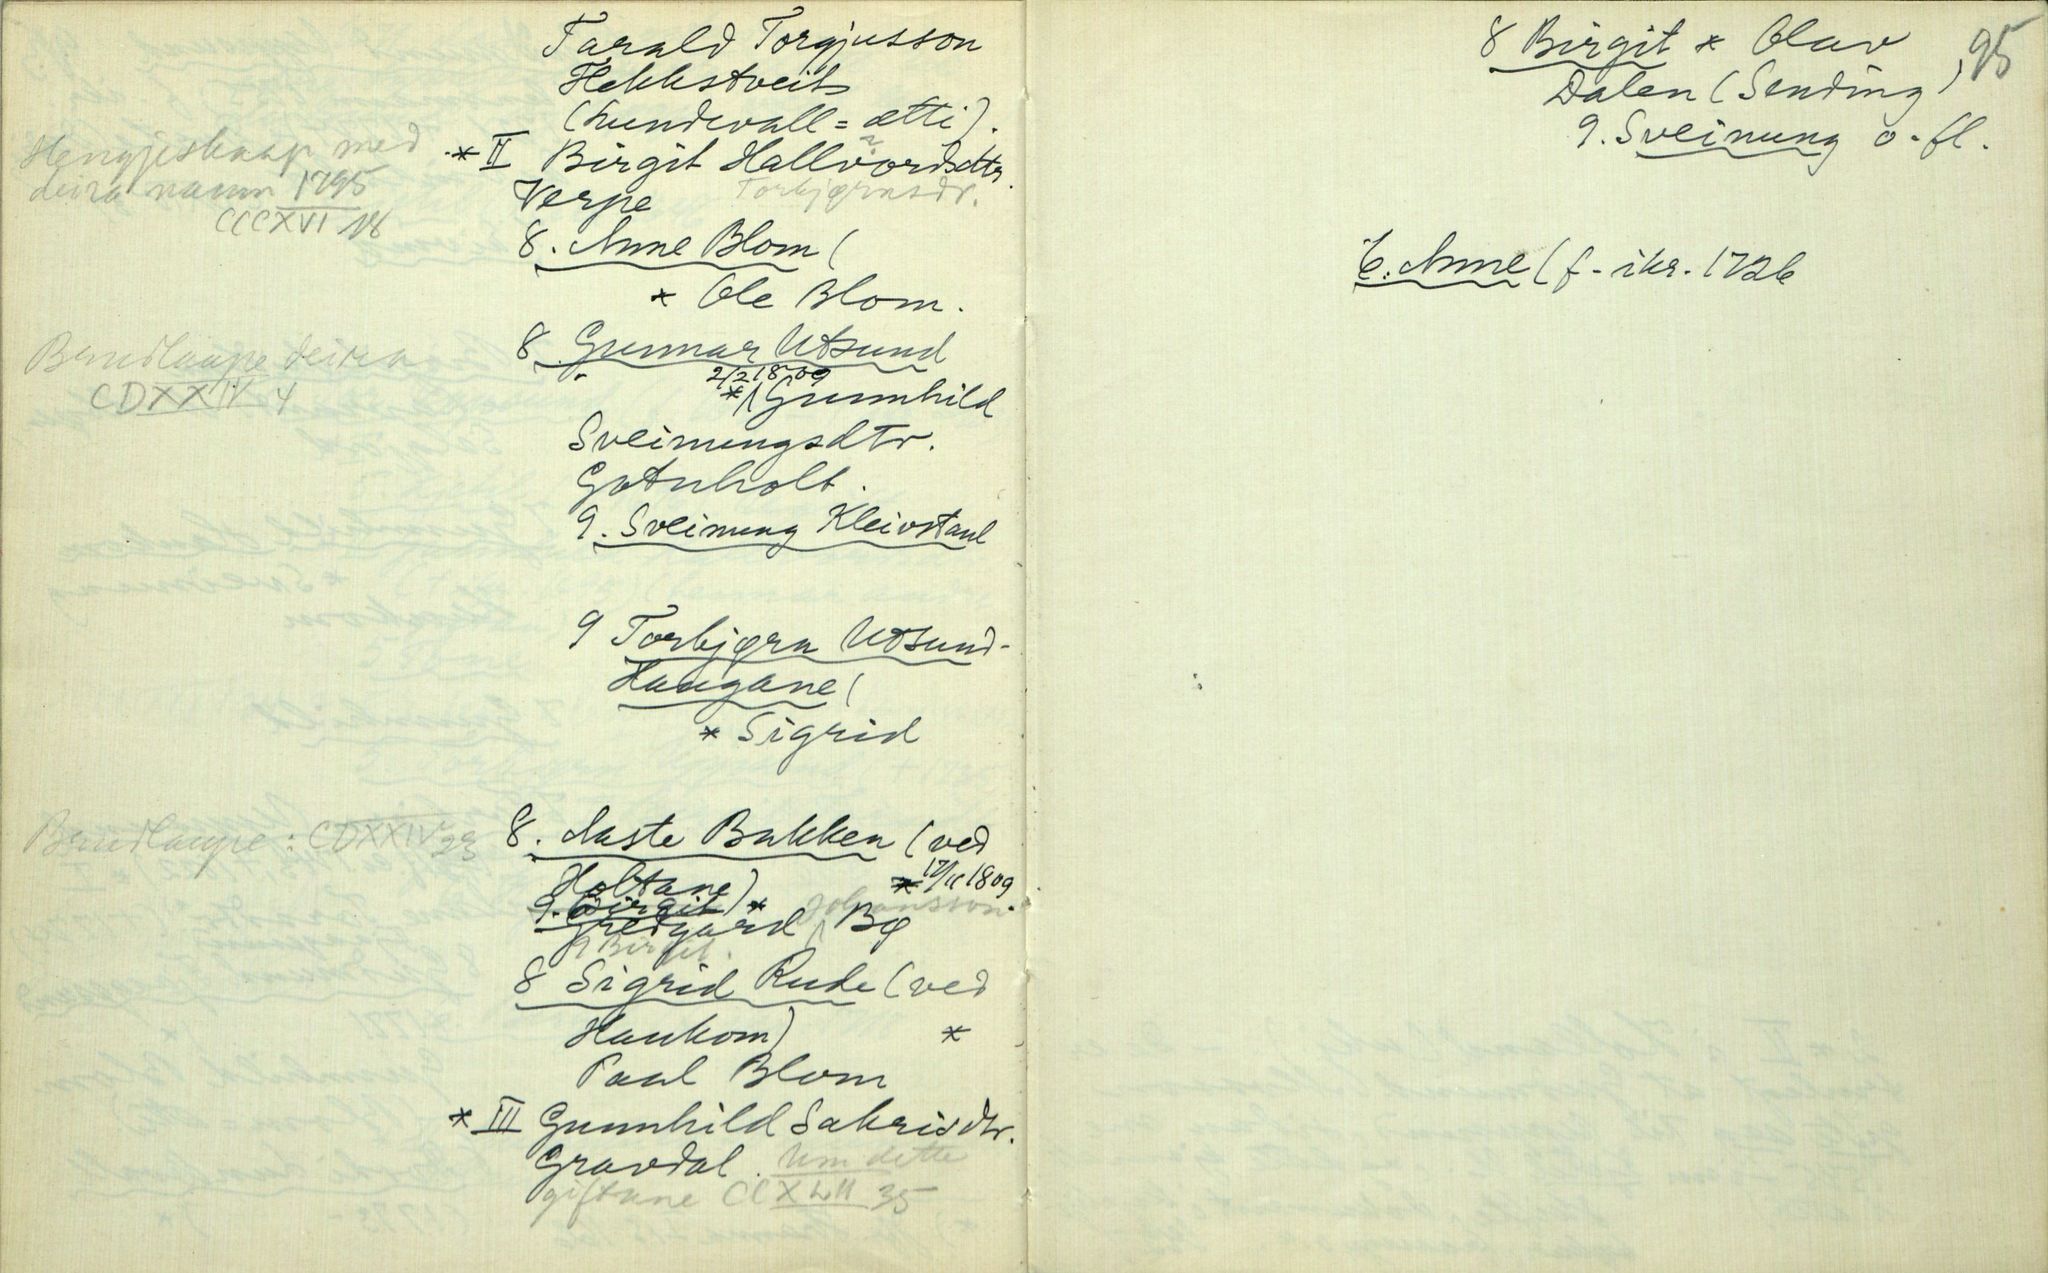 Tarald Torgjusson
Hekkstveit
(Lundevall = ætti).
Hengjeskaap med
deira namn 1795
CCCXVI 18
* II Birgit Hallvordsdtr.
?
Verpe Torbjørnsdr.
8. Anne Blom (
* Ole Blom.
8 Gunnar Utsund
2/2 1809
* Gunnhild
Brudlaupe deira
CDXXIV 4
Sveinungsdtr.
Gotuholt.
9. Sveinung Kleivstaul
9 Torbjørn Utsund-
Haugane (
* Sigrid
Brudlaupe: CDXXIV 23
8. Aaste Bakken (ved
Holtane) * 17/11 1809.
9. Birgit * Johansson
Gredgård Bø
9 Birgit.
8 Sigrid Rude (ved
Haukom) *
Paal Blom
* III Gunnhild Sakrisdtr.
Gravdal. Um dette
giftane CCXLII 35
8 Birgit * Olav 95
Dalen (Sending)
9. Sveinung o. fl.
6. Anne (f. ikr. 1726